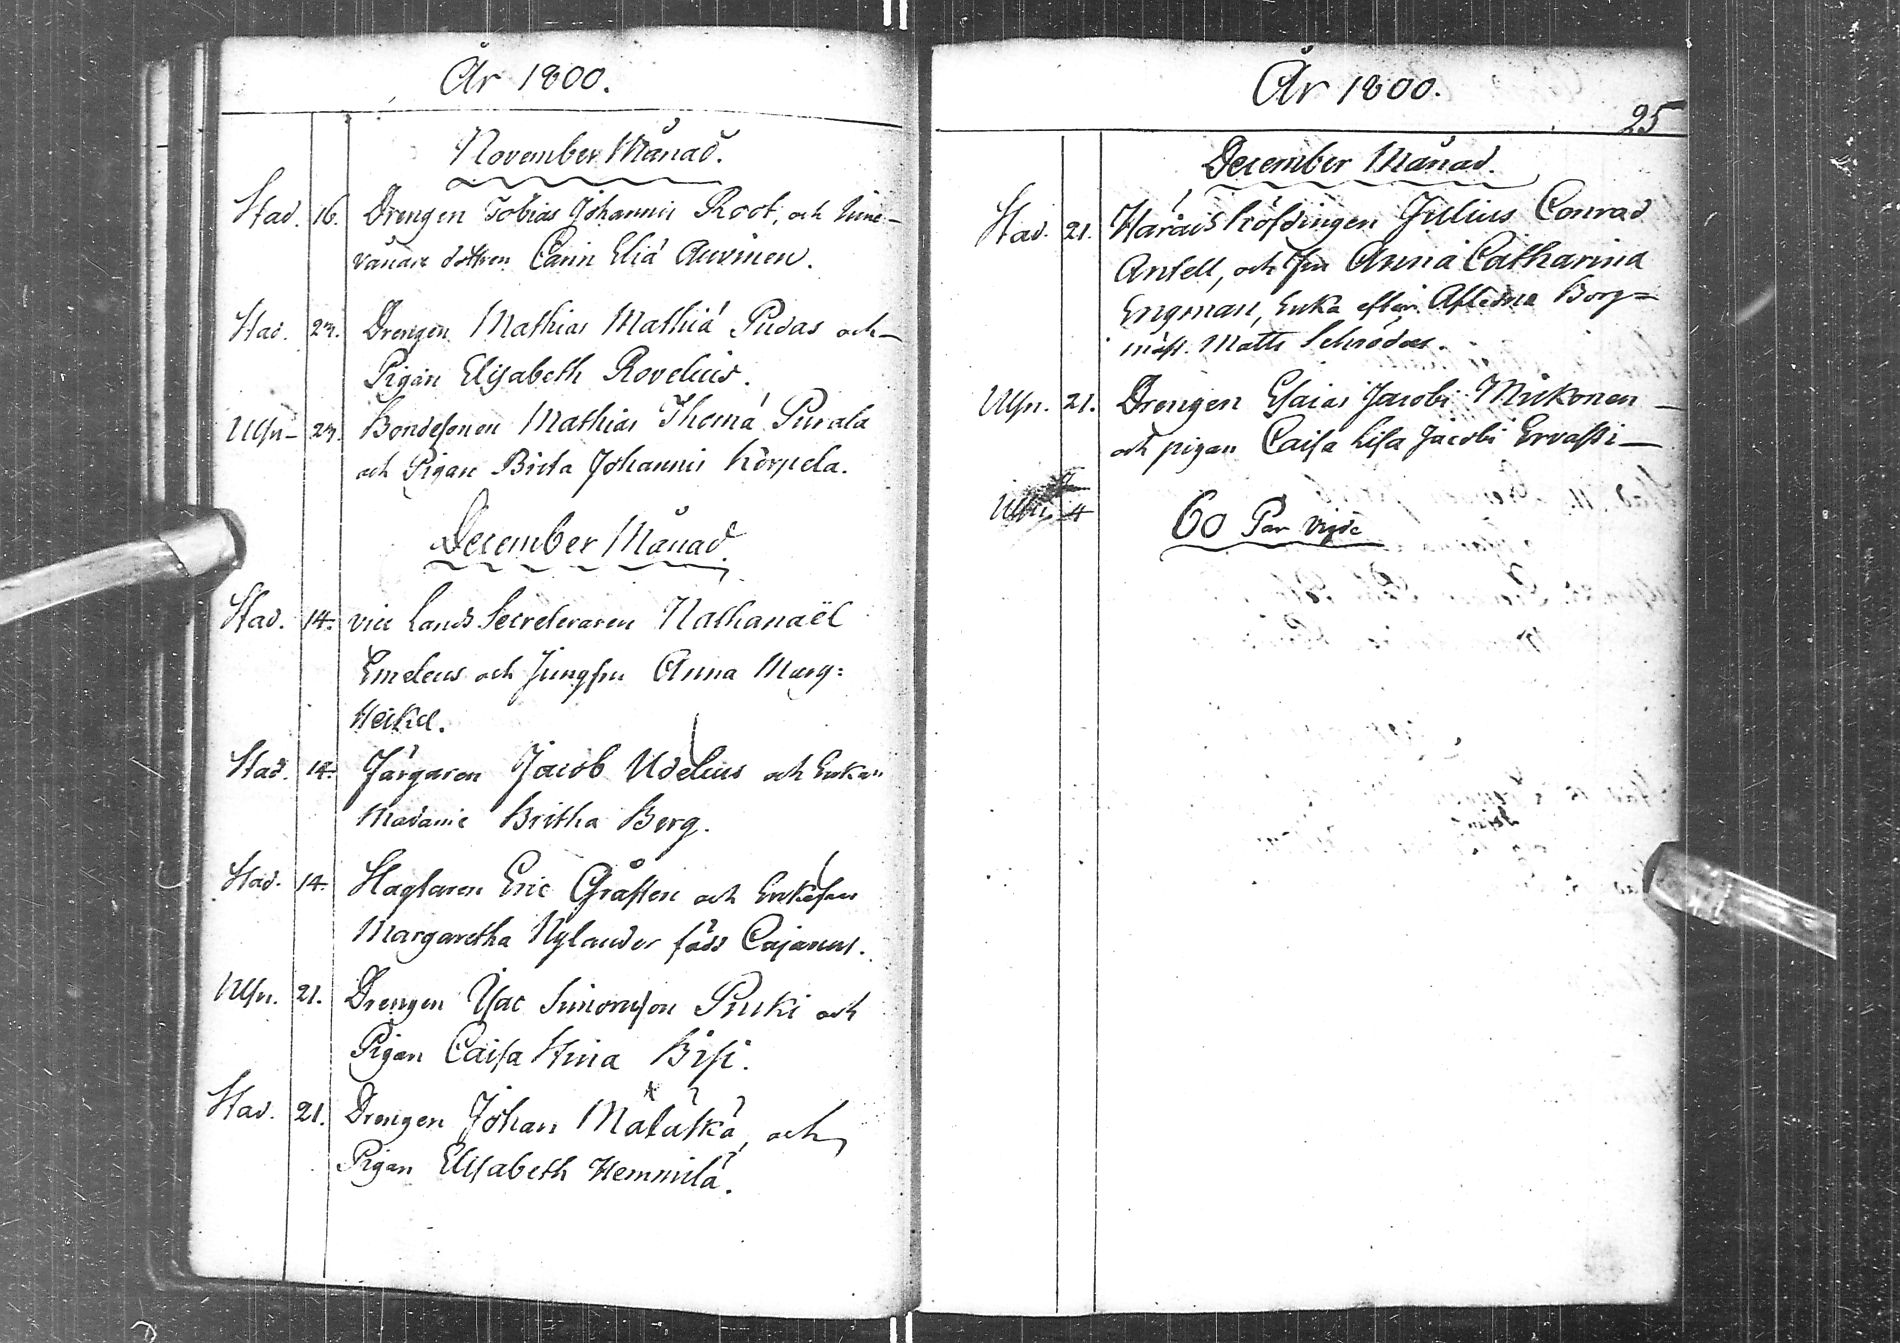 År 1800.
November Månad.
Stad. 16. Drengen Tobias Johannis Root, och Inne-
vånare dottren Carin Eliæ Auvinen.
Stad. 23. Drengen Mathias Mathiæ Pudas och
Pigan Elisabeth Rovelius.
Ulsn 23. Bondesonen Mathias Thomæ Purala
och Pigan Brita Johannis Körpela.
December Månad.
Stad. 14. vice Lands Secreteraren Nathanaël
Emeleus och Jungfru Anna Marg:
Heikel.
Stad. 14. Färgaren Jacob Udelius och Enkan
Madame Britha Berg.
Stad. 14. Eric Gråsten och Enkefru
Margaretha Nylander född Cajanus.
Ulsn. 21. Drengen Isac Simonsson Pruki och
Pigan Caisa Stina Bisi.
Stad. 21. Drengen Johan Mätäskä, och
Pigan Elisabeth Hemmilä.
År 1800.
25
December Månad.
Stad. 21. Häradshöfdingen Julius Conrad
Antell, och fru Anna Catharina
Engman, Enka efter Afledne Borg-
mäst. Matts Schroder.
Ulsn. 21. Drengen Esaias Jacobi Mickonen
och pigan Caisa Lisa Jacobi Ervasti
60 Par vigde